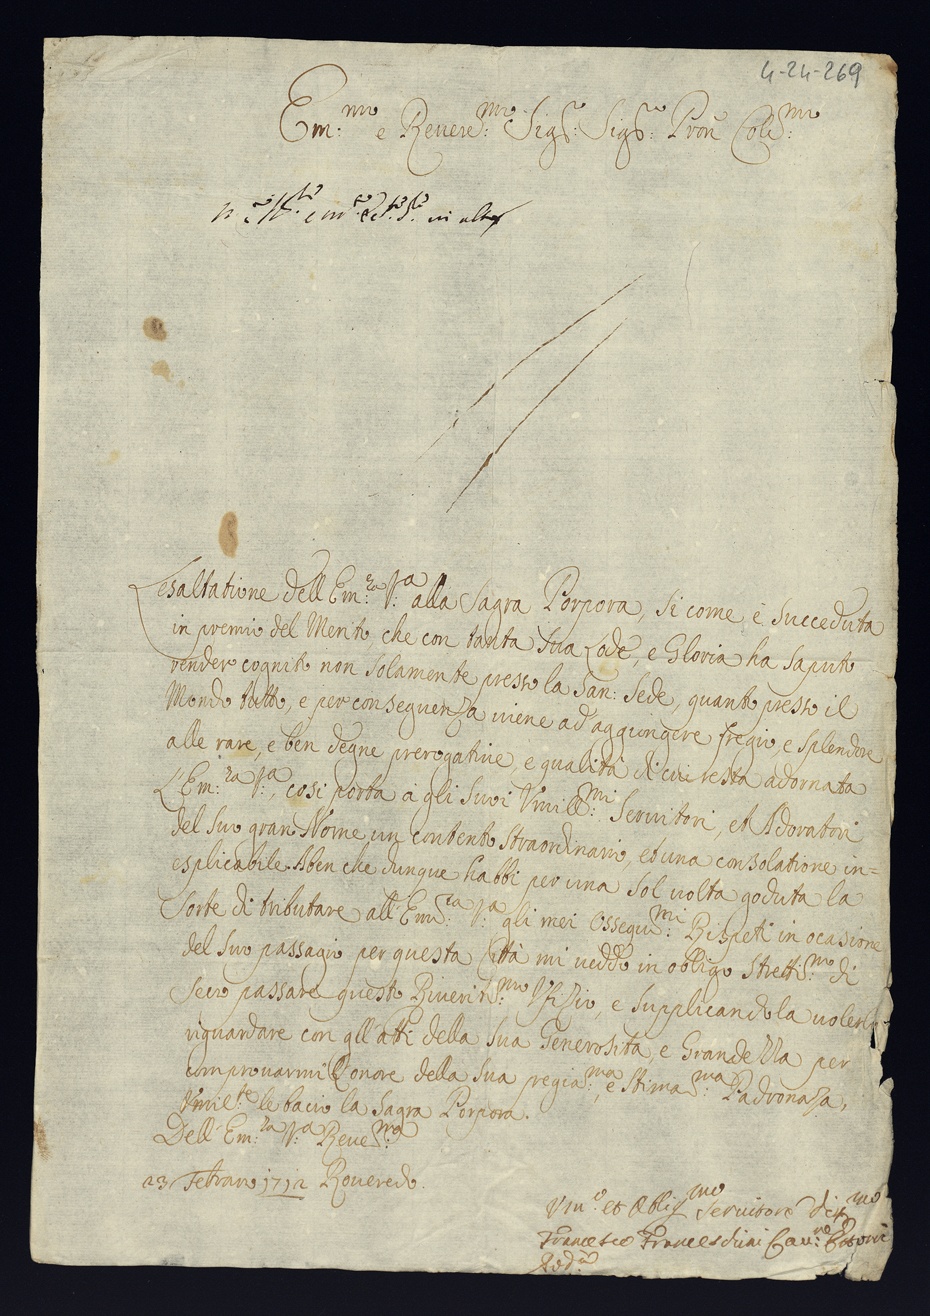 4-24-269
Em:mo e Revere:mo Sigr: Sigr: Pron Col:mo
in altra
L'esaltatione dell Em:za V:a alla Sagra Porpora, si come è succeduta
in premio del Merito, che con tanta sua Lode, e Gloria ha saputo
render cognito non solamente presso la San: Sede, quanto presso il
Mondo tutto, e per conseguenza viene ad aggiongere fregio, e splendore
alle rare, e ben degne prerogative, e qualità di cui resta adornata
L'Em:za V:a, cosi porta à gli Suoi Vmill:mi Servitori, et Adoratori
del suo gran Nome un contento straordinario, et una consolatione in=
esplicabile. Aben che dunque habbi per una sol volta goduta la
Sorte di tributare all'Em:za V:a gli mei Ossequi:mi Rispeti in ocasione
del suo passagio per questa Città mi veddo in obligo stretis:mo di
Seco passare questo Riverit:mo Vfizio, e supplicandola volersi
riguardare con gll'atti della sua Generosità, e Grandezza per
comprovarmi l'onore della sua pregia:ma, e stima:ma Padronaza,
Vmile:te le bacio la Sagra Porpora.
Dell'Em:za V:a Reve:ma
23 Febraro 1712 Roveredo.
Vm:o et Oblig:mo Servitore
Francesco Franceschini Cav:re